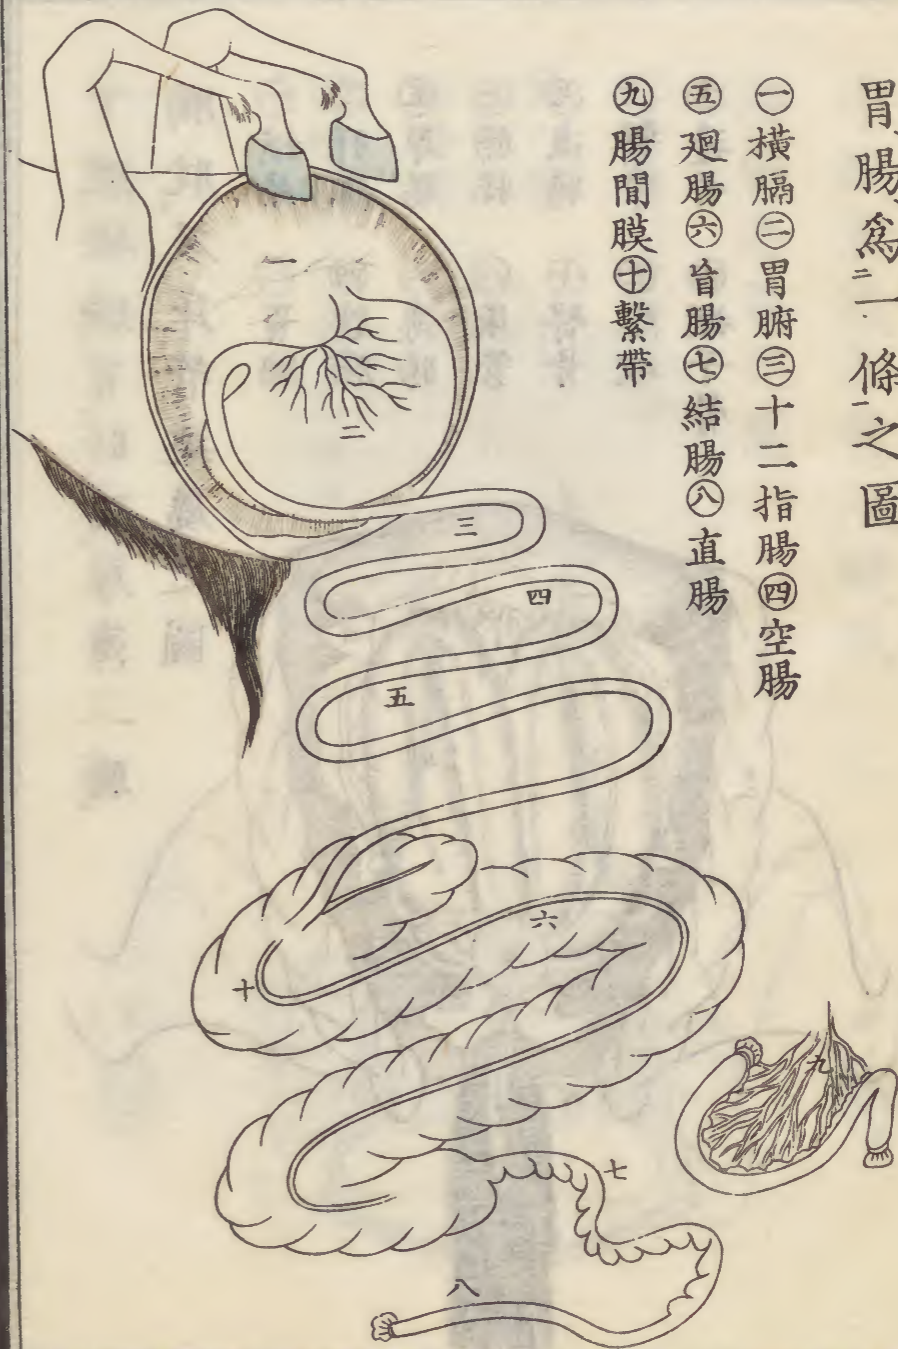 胃腸爲二一條一之圖
㊀橫膈㊁胃腑㊂十二指腸㊃空腸
㊄廻腸㊅盲腸㊆結腸㊇直腸
㊈腸間膜㊉繫帶
一
二
三
四
五
六
十
九
七
八